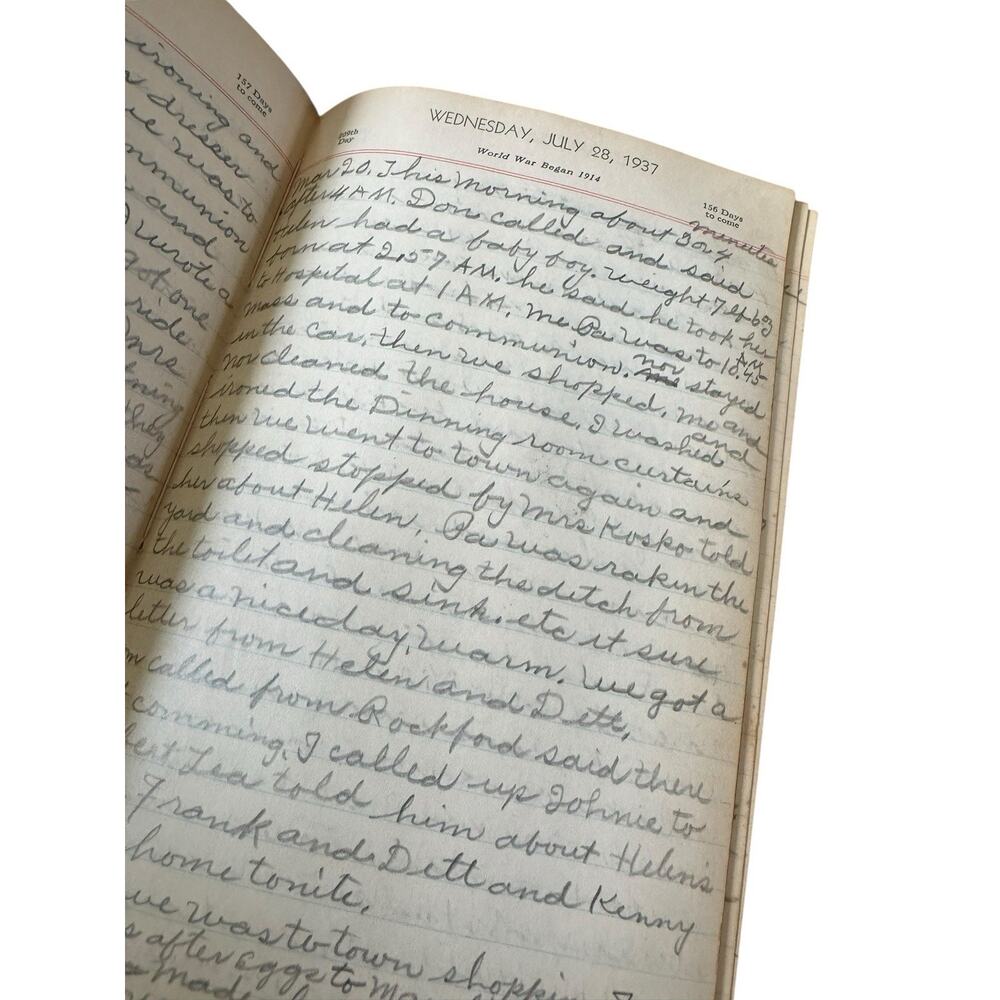 ironing and
dresser
we was to
communion
and
wrote a
got one
ride
Mrs
they
or
157 Days
to come
WEDNESDAY, JULY 28, 1937
209th
Day
World War Began 1914
156 Days
to come
Mar 20. This morning about 3 or 4 minutes
after 4 A.M. Don called and said
Helen had a baby boy. weight 7 lb 6 oz
born at 2,57 A.M. he said he took her
to Hospital at 1 A.M. Me Pa was to 10.45 AM
Mass and to communion. nor stayed
in the car, then we shopped. me and
nor cleaned the house, I washed and
ironed the Dinning room curtains
then we went to town again and
shopped stopped by Mrs Kosko told
her about Helen. Pa was raken the
yard and cleaning the ditch from
the toilet and sink. etc it sure
was a nice day, warm. We got a
letter from Helen and Dett,
called from Rockford said there
comming. I called up Johnie to
Lea told him about Helen's
Frank and Dett and Kenny
home tonite.
we was to town shoppin
after eggs to
Made